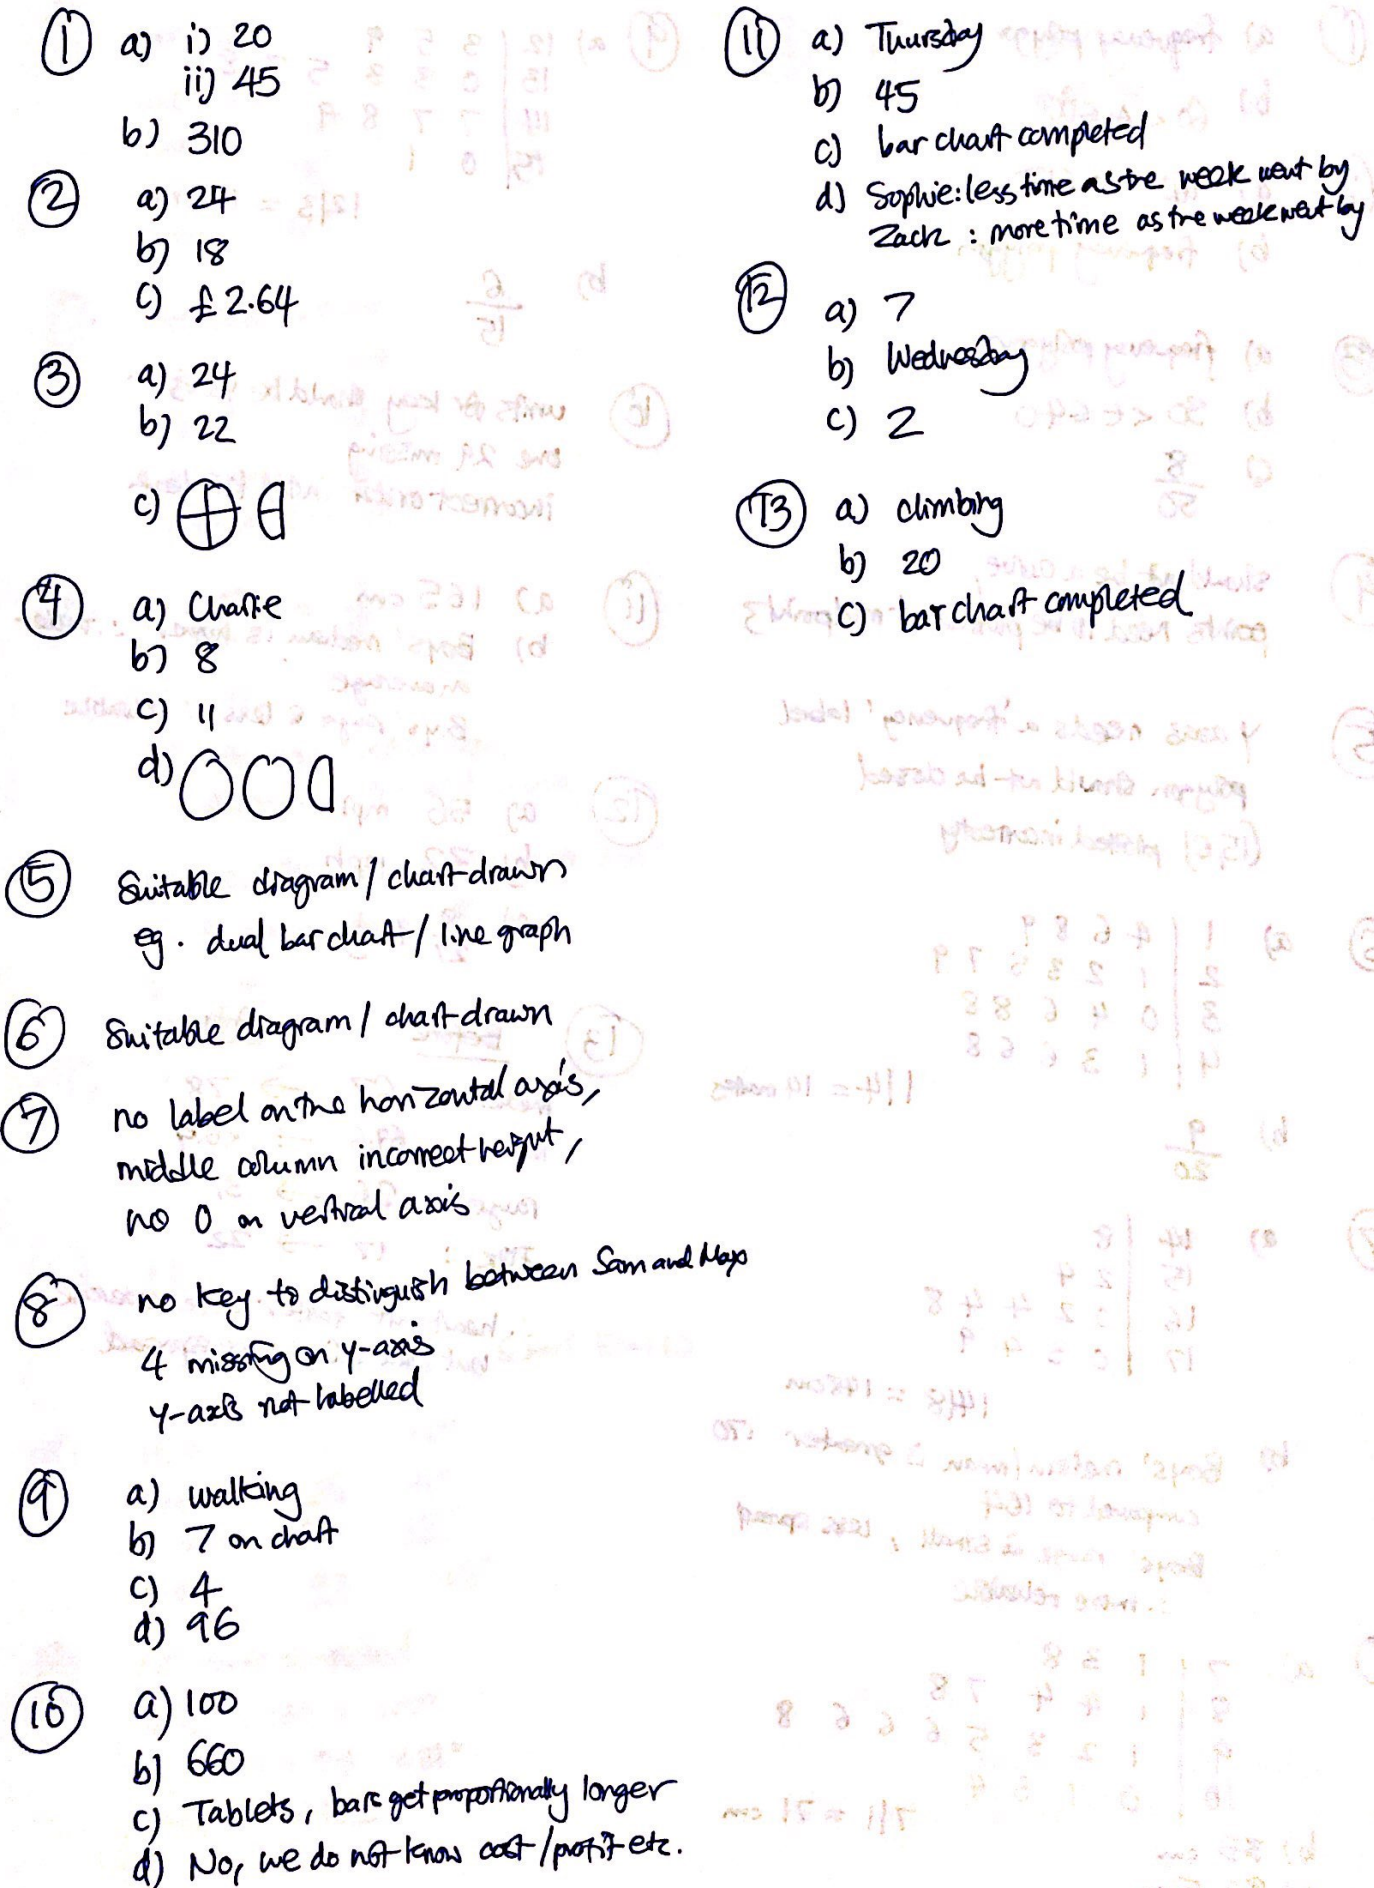 1 a) i) 20
ii) 45
b) 310
2 a) 24
b) 18
c) £2.64
3 a) 24
b) 22
c)
4 a) Charlie
b) 8
c) 11
d)
5 Suitable diagram / chart drawn
eg. dual bar chart / line graph
6 Suitable diagram / chart drawn
7 no label on the horizontal axis,
middle column incorrect height,
no 0 on vertical axis
8 no key to distinguish between Sam and Max
4 missing on y-axis
y-axis not labelled
9 a) walking
b) 7 on chart
c) 4
d) 96
10 a) 100
b) 660
c) Tablets, bars get proportionally longer
d) No, we do not know cost / profit etc.
11 a) Thursday
b) 45
c) bar chart completed
d) Sophie: less time as the week went by
Zach : more time as the week went by
12 a) 7
b) Wednesday
c) 2
13 a) climbing
b) 20
c) bar chart completed